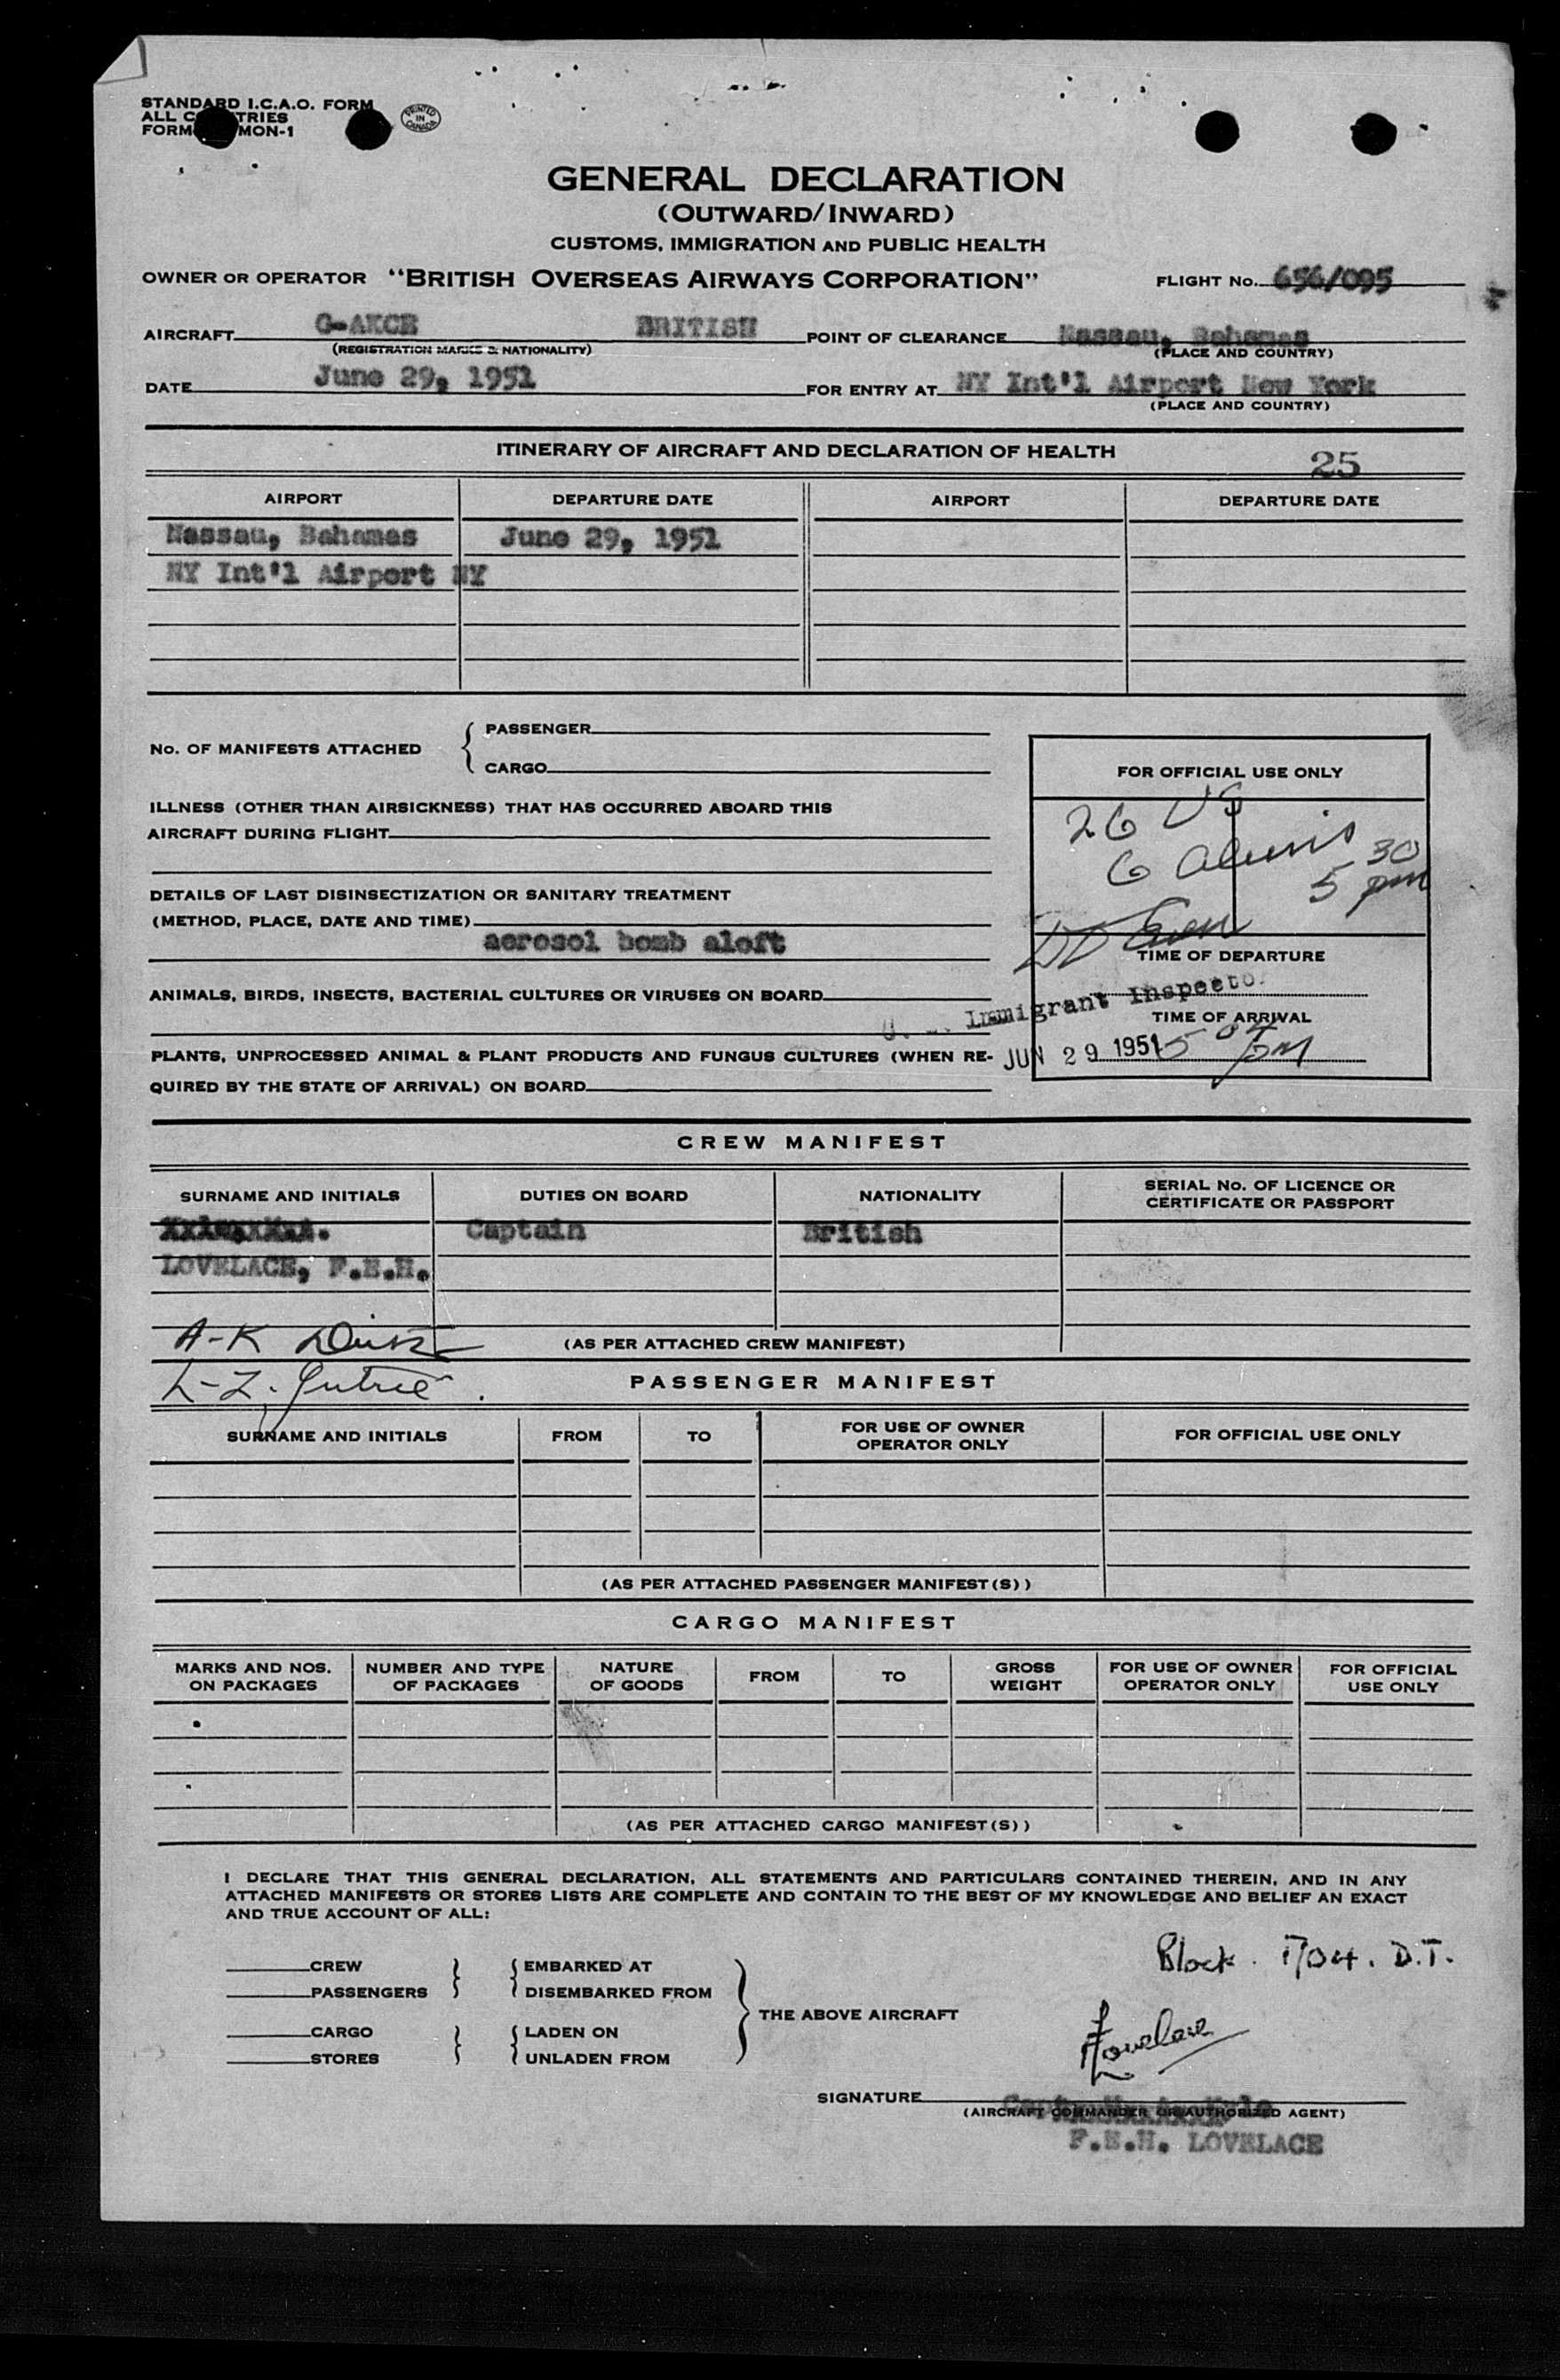 STANDARD I.C.A.O. FORM
ALL C TRIES
FORM MON-1
PRINTED IN CANADA
GENERAL DECLARATION
(OUTWARD/INWARD)
CUSTOMS, IMMIGRATION AND PUBLIC HEALTH
OWNER OR OPERATOR "BRITISH OVERSEAS AIRWAYS CORPORATION" FLIGHT No. 656/095
AIRCRAFT G-AKCE BRITISH POINT OF CLEARANCE Nassau, Bahamas
(REGISTRATION MARKS & NATIONALITY) (PLACE AND COUNTRY)
DATE June 29, 1951 FOR ENTRY AT NY Int'l Airport New York
(PLACE AND COUNTRY)
ITINERARY OF AIRCRAFT AND DECLARATION OF HEALTH 25
AIRPORT DEPARTURE DATE AIRPORT DEPARTURE DATE
Nassau, Bahamas June 29, 1951
NY Int'l Airport NY
No. OF MANIFESTS ATTACHED { PASSENGER
CARGO
FOR OFFICIAL USE ONLY
ILLNESS (OTHER THAN AIRSICKNESS) THAT HAS OCCURRED ABOARD THIS
AIRCRAFT DURING FLIGHT
26 US
6 aliens 5 30 pm
DETAILS OF LAST DISINSECTIZATION OR SANITARY TREATMENT
(METHOD, PLACE, DATE AND TIME)
aerosol bomb aloft
TIME OF DEPARTURE
ANIMALS, BIRDS, INSECTS, BACTERIAL CULTURES OR VIRUSES ON BOARD
Immigrant Inspector
TIME OF ARRIVAL
PLANTS, UNPROCESSED ANIMAL & PLANT PRODUCTS AND FUNGUS CULTURES (WHEN RE-
JUN 29 1951 5 04 pm
QUIRED BY THE STATE OF ARRIVAL) ON BOARD
CREW MANIFEST
SURNAME AND INITIALS DUTIES ON BOARD NATIONALITY SERIAL No. OF LICENCE OR
CERTIFICATE OR PASSPORT
Captain British
LOVELACE, F.E.H.
A-K
(AS PER ATTACHED CREW MANIFEST)
L-Z.
PASSENGER MANIFEST
SURNAME AND INITIALS FROM TO FOR USE OF OWNER
OPERATOR ONLY FOR OFFICIAL USE ONLY
(AS PER ATTACHED PASSENGER MANIFEST(S))
CARGO MANIFEST
MARKS AND NOS.
ON PACKAGES NUMBER AND TYPE
OF PACKAGES NATURE
OF GOODS FROM TO GROSS
WEIGHT FOR USE OF OWNER
OPERATOR ONLY FOR OFFICIAL
USE ONLY
(AS PER ATTACHED CARGO MANIFEST(S))
I DECLARE THAT THIS GENERAL DECLARATION, ALL STATEMENTS AND PARTICULARS CONTAINED THEREIN, AND IN ANY
ATTACHED MANIFESTS OR STORES LISTS ARE COMPLETE AND CONTAIN TO THE BEST OF MY KNOWLEDGE AND BELIEF AN EXACT
AND TRUE ACCOUNT OF ALL:
Block. 1704. D.T.
CREW } { EMBARKED AT
PASSENGERS } { DISEMBARKED FROM
THE ABOVE AIRCRAFT
CARGO } { LADEN ON
STORES } { UNLADEN FROM
Lovelace
SIGNATURE
(AIRCRAFT COMMANDER OR AUTHORIZED AGENT)
F.E.H. LOVELACE